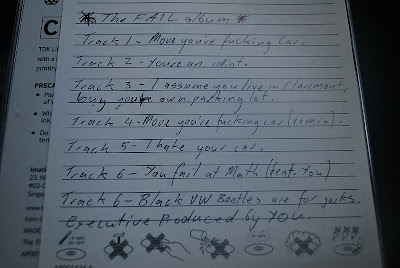 * The FAIL album *
Track 1 - Move you're fucking car.
Track 2 - Youre an idiot.
Track 3 - I assume you live in Claremont,
buy your own parking lot.
Track 4 - Move you're fucking car (remix).
Track 5 - I hate your car.
Track 6 - You fail at Math (feat. You)
Track 6 - Black VW Beetles are for
Executive Produced by YOU.
C
TDK
with a
printing
PRECA
Imati
23, N
#03-0
Singap
MADE
The T